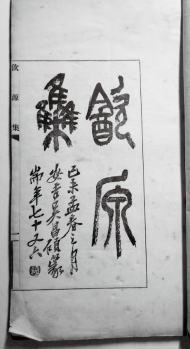 飲原
集
己未孟春之月
安吉吳昌碩篆
峕年七十又六
飲源集